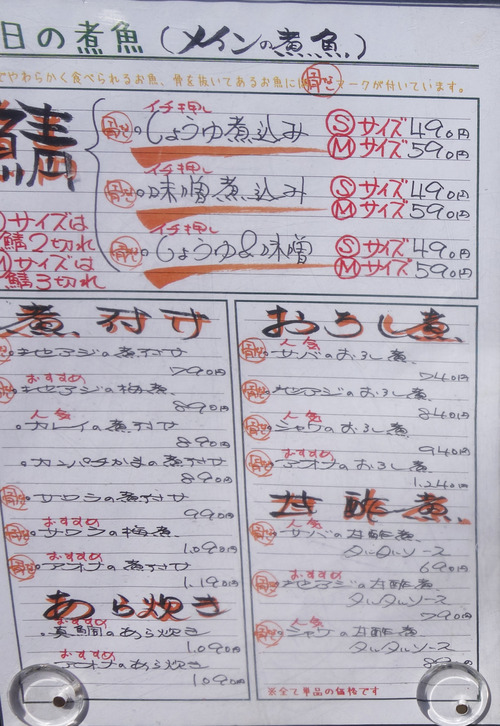 日の煮魚(メインの煮魚)
でやわらかく食べられるお魚、骨を抜いてあるお魚には骨なしマークが付いています。
鯖
イチ押し
骨なし しょうゆ煮込み Ⓢサイズ490円
Ⓜサイズ590円
イチ押し
骨なし 味噌煮込み Ⓢサイズ490円
Ⓜサイズ590円
イチ押し
骨なし しょうゆ&味噌 Ⓢサイズ490円
Ⓜサイズ590円
サイズは
鯖2切れ
Mサイズは
鯖3切れ
煮付け
地アジの煮付け
790円
おすすめ
地アジの梅煮
890円
人気
・カレイの煮付け
890円
・カンパチかまの煮付け
890円
骨なし サワラの煮付け
990円
おすすめ
骨なし サワラの梅煮
1,090円
おすすめ
骨なし アオナの煮付け
1,190円
あら炊き
おすすめ
・真鯛のあら炊き
1,090円
おすすめ
・アオナのあら炊き
1,090円
おろし煮
人気
骨なし サバのおろし煮
740円
骨なし 地アジのおろし煮
840円
人気
骨なし シャケのおろし煮
940円
おすすめ
骨なし アオナのおろし煮
1,240円
甘酢煮
人気
骨なし サバの甘酢煮
タルタルソース
690円
おすすめ
骨なし 地アジの甘酢煮
タルタルソース
790円
人気
骨なし シャケの甘酢煮
タルタルソース
89
※全て単品の価格です